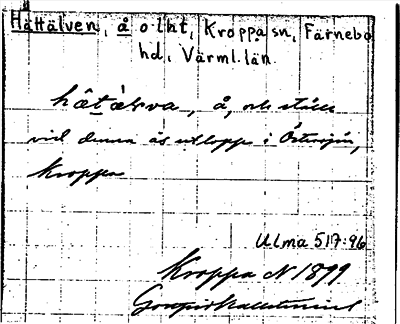 Hättälven, å o lht, Kroppa sn, Färnebo
hd, Värml. län.
hätälva, å, och ställe
vid denna ås utlopp i Östersjön,
Kroppa
Ulma 517:96
Kroppa N 1899